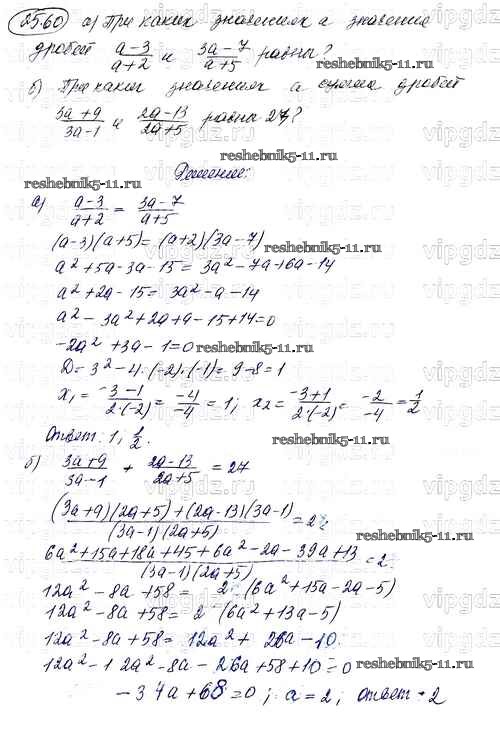 2560) а) При каких значениях а значения
дробей (a-3)/(a+2) и (3a-7)/(a+5) равны?
reshebnik5-11.ru
б) При каких значениях а сумма дробей
(3a+9)/(3a-1) и (2a-13)/(2a+5) равны 2?
reshebnik5-11.ru
Решение:
reshebnik5-11.ru
а) (a-3)/(a+2) = (3a-7)/(a+5)
(a-3)(a+5)=(a+2)(3a-7)
reshebnik5-11.ru
a²+5a-3a-15=3a²-7a+6a-14
a²+2a-15=3a²-a-14
a²-3a²+2a+a-15+14=0
-2a²+3a-1=0
reshebnik5-11.ru
D=3²-4·(-2)·(-1)=9-8=1
x₁=(-3-1)/(2·(-2))=(-4)/(-4)=1; x₂=(-3+1)/(2·(-2))=(-2)/(-4)=1/2
Ответ: 1, 1/2.
reshebnik5-11.ru
б) (3a+9)/(3a-1) + (2a-13)/(2a+5) = 2
((3a+9)(2a+5)+(2a-13)(3a-1))/((3a-1)(2a+5))=2
reshebnik5-11.ru
(6a²+15a+18a+45+6a²-2a-39a+13)/((3a-1)(2a+5))=2
12a²-8a+58= 2·(6a²+15a-2a-5)
12a²-8a+58= 2·(6a²+13a-5)
12a²-8a+58=12a²+26a-10.
12a²-12a²-8a-26a+58+10=0
reshebnik5-11.ru
-34a+68=0; a=2; ответ: 2
vipgdz